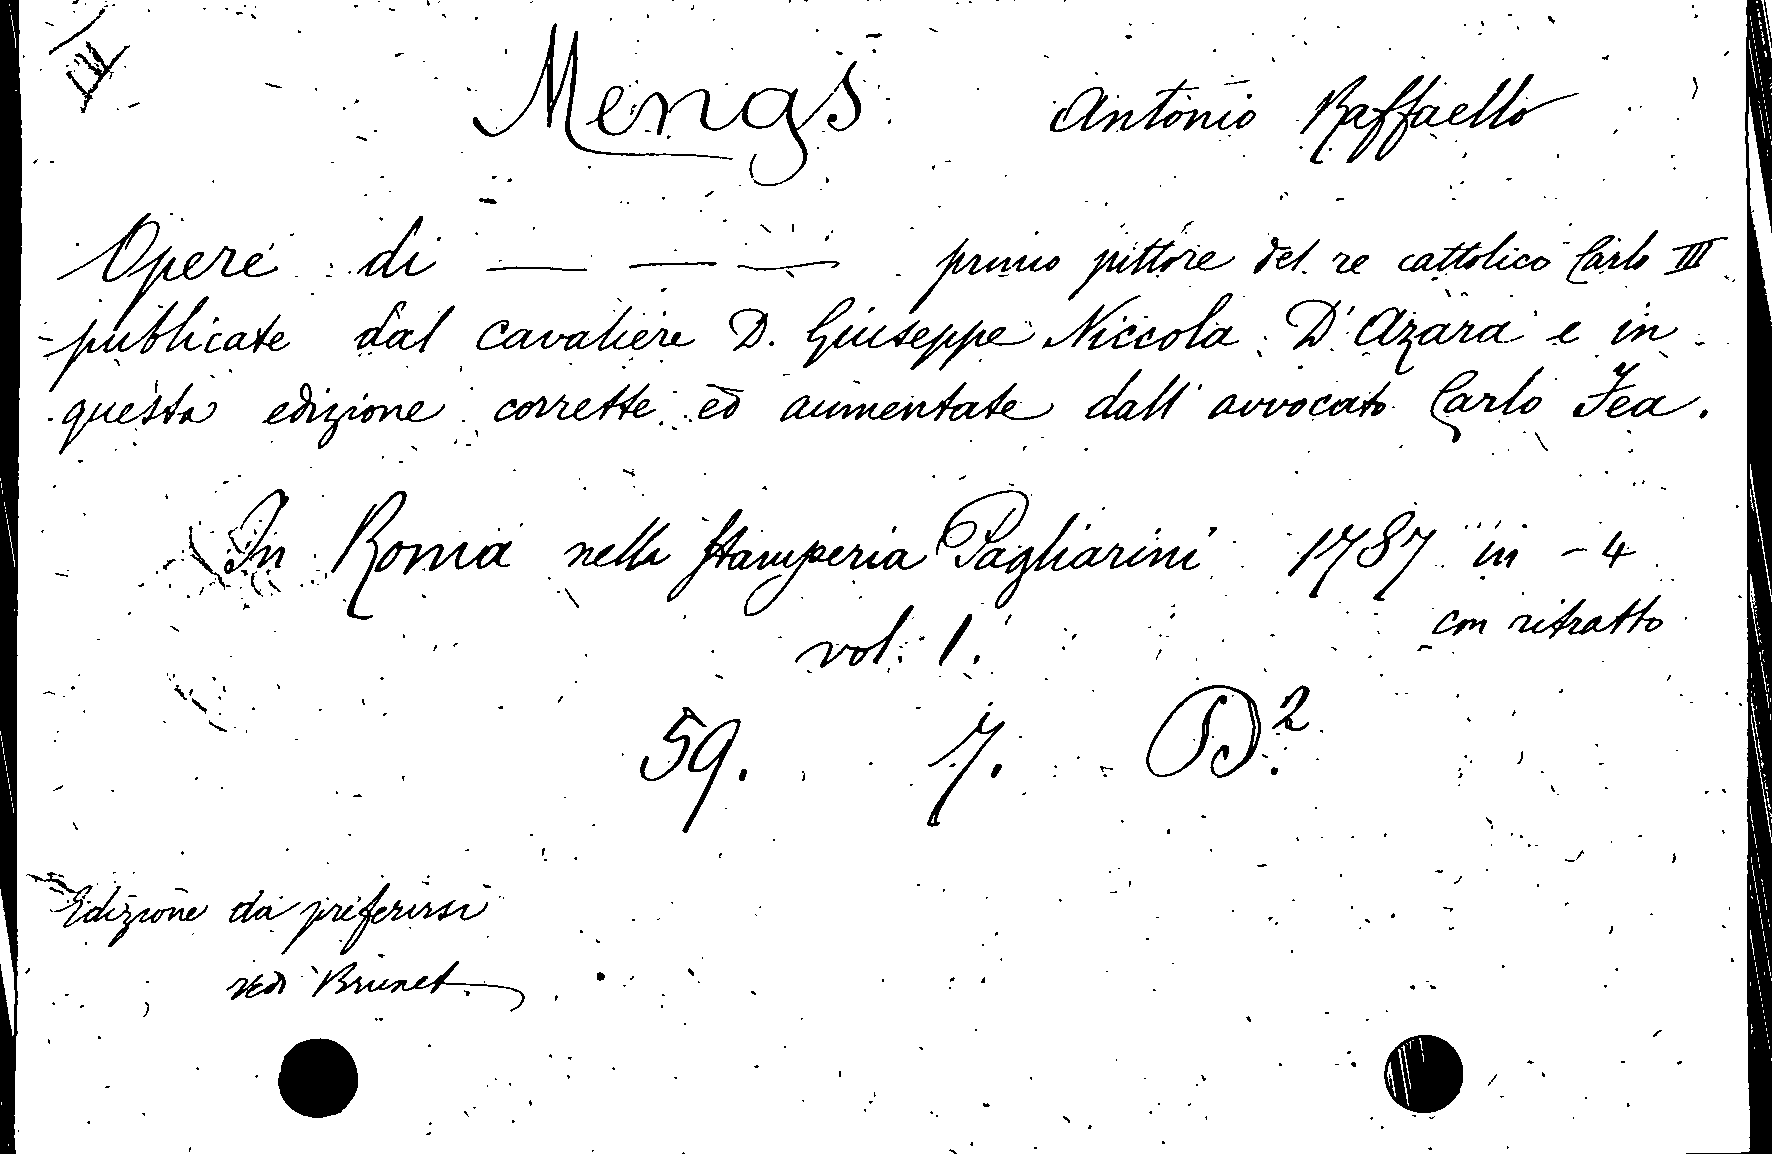 Mengs Antonio Raffaello
Opere di — — — primo pittore del re cattolico Carlo III
publicate dal cavaliere D. Giuseppe Niccola D'Azara e in
questa edizione corrette ed aumentate dall' avvocato Carlo Fea.
In Roma nella stamperia Pagliarini 1787 in -4
con ritratto
vol. 1.
59. 7. D².
Edizione da preferirsi
vedi Brunet